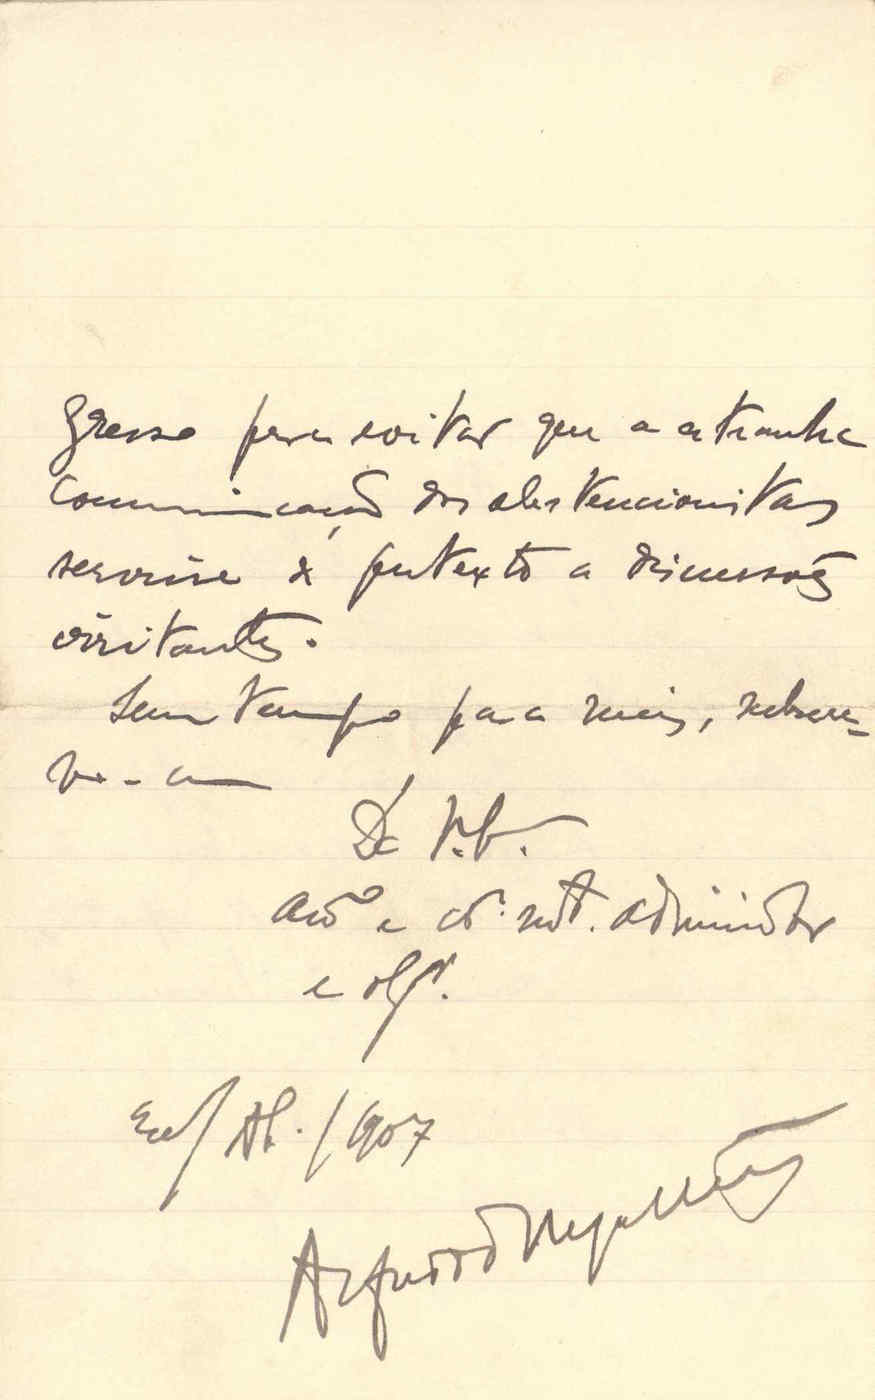 gresso para evitar que a extranha
communicação dos abstencionistas
servisse de pretexto a discussões
irritantes.
Sem tempo para mais, subscre-
vo-me
De V. E.
amº e cor. mtº. admirador
e obgº.
1907
Alfredo Magalhães